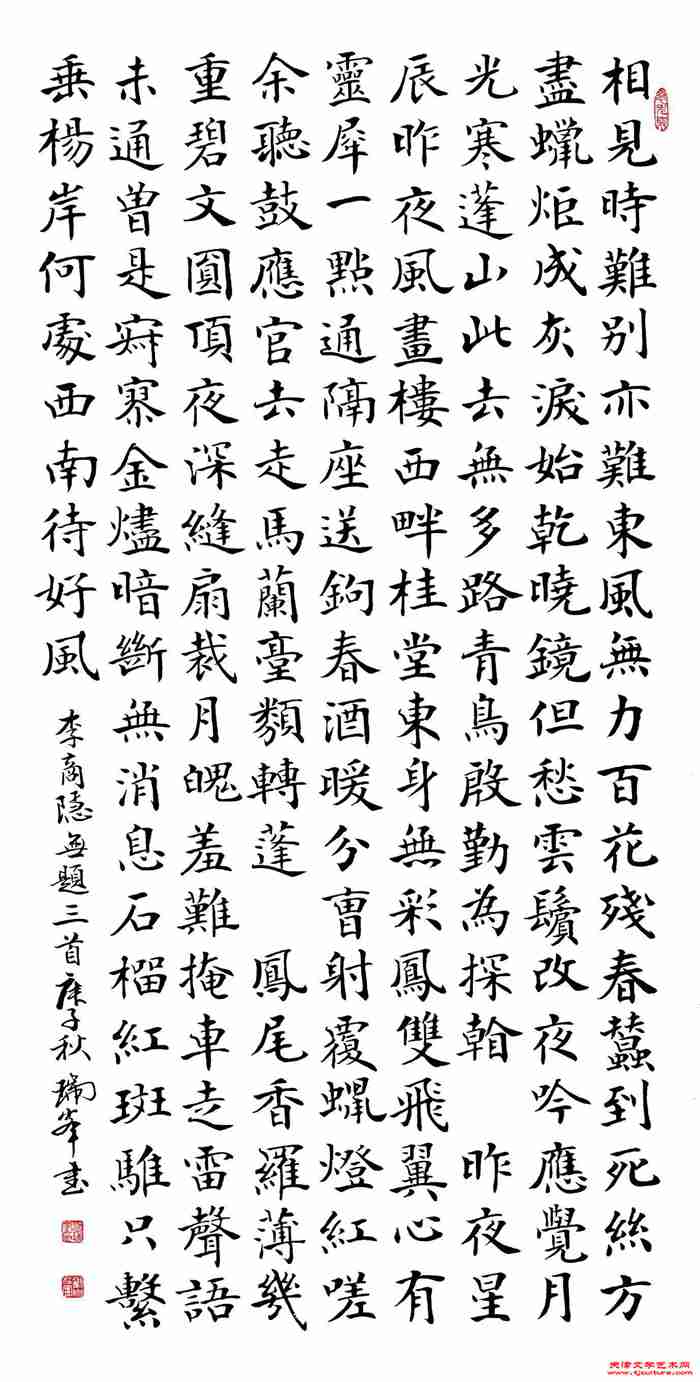 相見時難別亦難東風無力百花殘春蠶到死絲方
盡蠟炬成灰淚始乾曉鏡但愁雲鬢改夜吟應覺月
光寒蓬山此去無多路青鳥殷勤為探翰 昨夜星
辰昨夜風畫樓西畔桂堂東身無彩鳳雙飛翼心有
靈犀一點通隔座送鉤春酒暖分曹射覆蠟燈紅嗟
余聽鼓應官去走馬蘭臺類轉蓬 鳳尾香羅薄幾
重碧文圓頂夜深縫扇裁月魄羞難掩車走雷聲語
未通曾是寂寥金燼暗斷無消息石榴紅斑騅只繫
垂楊岸何處西南待好風
李商隱無題三首庚子秋瑞峯书
天津文学艺术网
www.tjculture.com